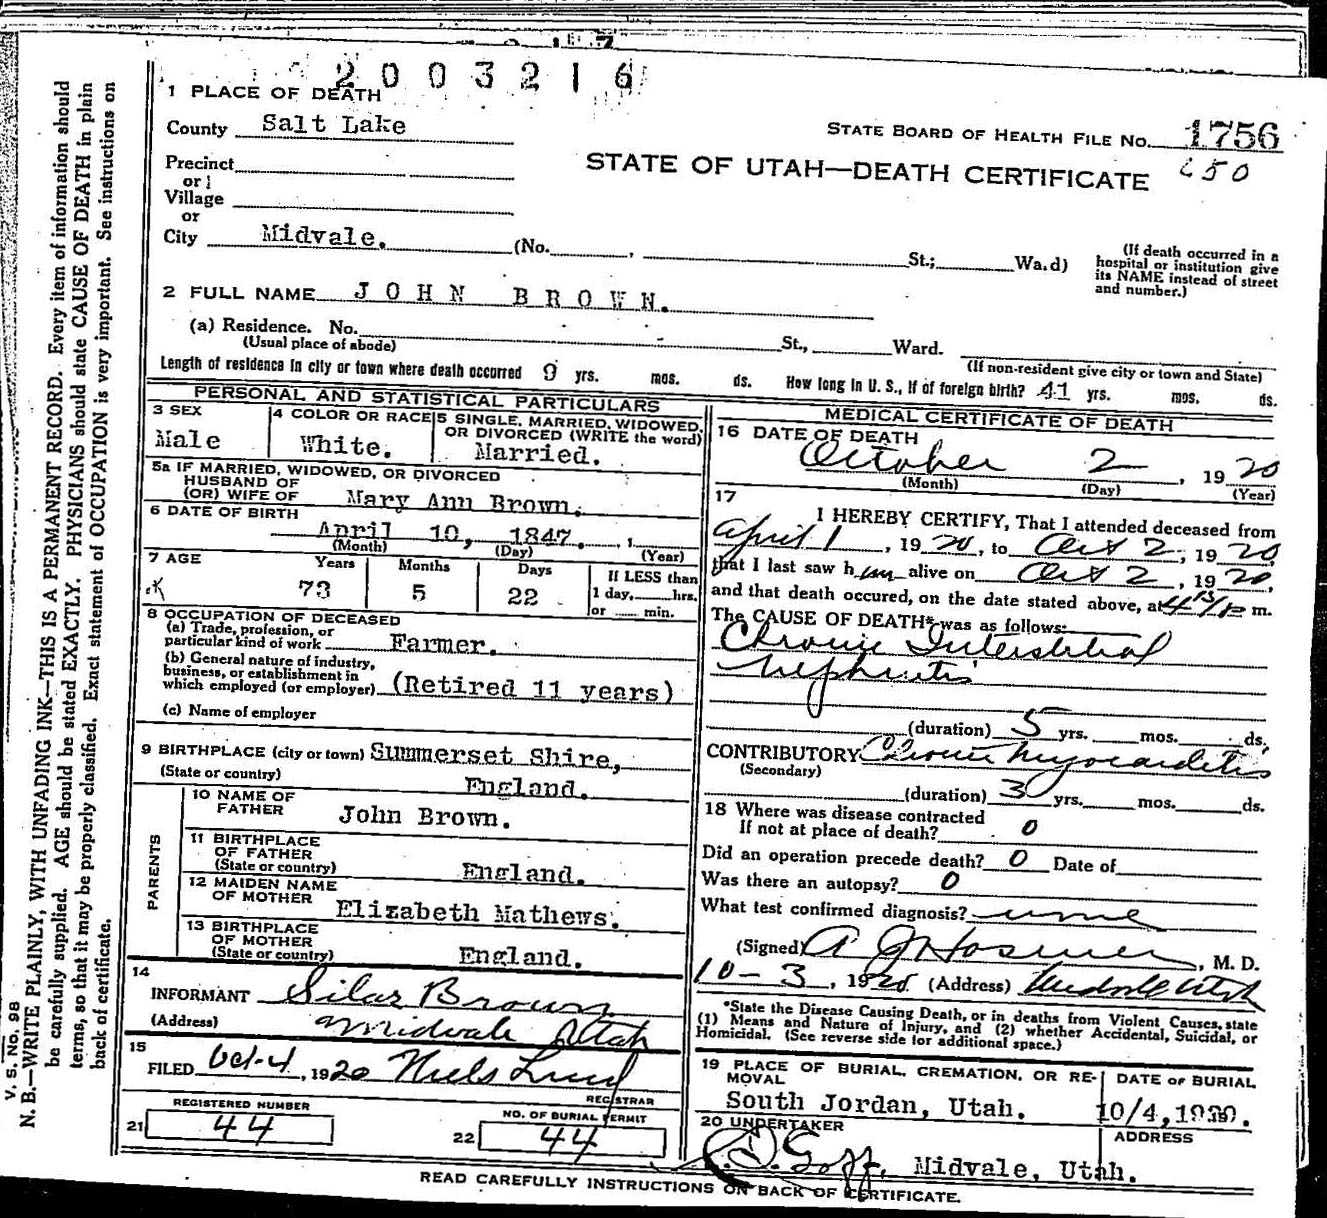 2003216
1 PLACE OF DEATH
County Salt Lake
STATE BOARD OF HEALTH FILE NO. 1756
650
STATE OF UTAH—DEATH CERTIFICATE
Precinct
or
Village
or
City Midvale. (No. , St.; Wa.d)
(If death occurred in a hospital or institution give its NAME instead of street and number.)
2 FULL NAME JOHN BROWN.
(a) Residence. No. St., Ward.
(Usual place of abode) (If non-resident give city or town and State)
Length of residence in city or town where death occurred 9 yrs. mos. ds. How long in U. S., if of foreign birth? 41 yrs. mos. ds.
PERSONAL AND STATISTICAL PARTICULARS
3 SEX
Male
4 COLOR OR RACE
White.
5 SINGLE, MARRIED, WIDOWED, OR DIVORCED (WRITE the word)
Married.
5a IF MARRIED, WIDOWED, OR DIVORCED
HUSBAND OF
(OR) WIFE OF Mary Ann Brown.
6 DATE OF BIRTH
April 10, 1847. , 1
(Month) (Day) (Year)
7 AGE Years Months Days
73 5 22
If LESS than
1 day, hrs.
or min.
8 OCCUPATION OF DECEASED
(a) Trade, profession, or
particular kind of work Farmer.
(b) General nature of industry,
business, or establishment in
which employed (or employer) (Retired 11 years)
(c) Name of employer
9 BIRTHPLACE (city or town) Summerset Shire,
(State or country) England.
PARENTS
10 NAME OF
FATHER John Brown.
11 BIRTHPLACE
OF FATHER
(State or country) England.
12 MAIDEN NAME
OF MOTHER Elizabeth Mathews.
13 BIRTHPLACE
OF MOTHER
(State or country) England.
14
INFORMANT Silas Brown
(Address) Midvale Utah
15
FILED Oct-4, 1920 Niels Lind
REGISTRAR
REGISTERED NUMBER
21 44
NO. OF BURIAL PERMIT
22 44
MEDICAL CERTIFICATE OF DEATH
16 DATE OF DEATH
October 2, 1920
(Month) (Day) (Year)
17
I HEREBY CERTIFY, That I attended deceased from
April 1, 1920, to Oct 2, 1920,
that I last saw him alive on Oct 2, 1920,
and that death occured, on the date stated above, at 4 m.
The CAUSE OF DEATH* was as follows:
Chronic Interstitial
Nephritis
(duration) 5 yrs. mos. ds.
CONTRIBUTORY Chronic Myocarditis
(Secondary)
(duration) 3 yrs. mos. ds.
18 Where was disease contracted
If not at place of death? 0
Did an operation precede death? 0 Date of
Was there an autopsy? 0
What test confirmed diagnosis? urine
(Signed) A J Hosmer, M. D.
10-3, 1920 (Address) Midvale Utah
*State the Disease Causing Death, or in deaths from Violent Causes, state
(1) Means and Nature of Injury, and (2) whether Accidental, Suicidal, or
Homicidal. (See reverse side for additional space.)
19 PLACE OF BURIAL, CREMATION, OR RE-
MOVAL
South Jordan, Utah.
DATE OF BURIAL
10/4,1920.
20 UNDERTAKER
Goff, Midvale, Utah.
ADDRESS
READ CAREFULLY INSTRUCTIONS ON BACK OF CERTIFICATE.
V. S. NO. 98
N. B.—WRITE PLAINLY, WITH UNFADING INK—THIS IS A PERMANENT RECORD. Every item of information should
be carefully supplied. AGE should be stated EXACTLY. PHYSICIANS should state CAUSE OF DEATH in plain
terms, so that it may be properly classified. Exact statement of OCCUPATION is very important. See instructions on
back of certificate.